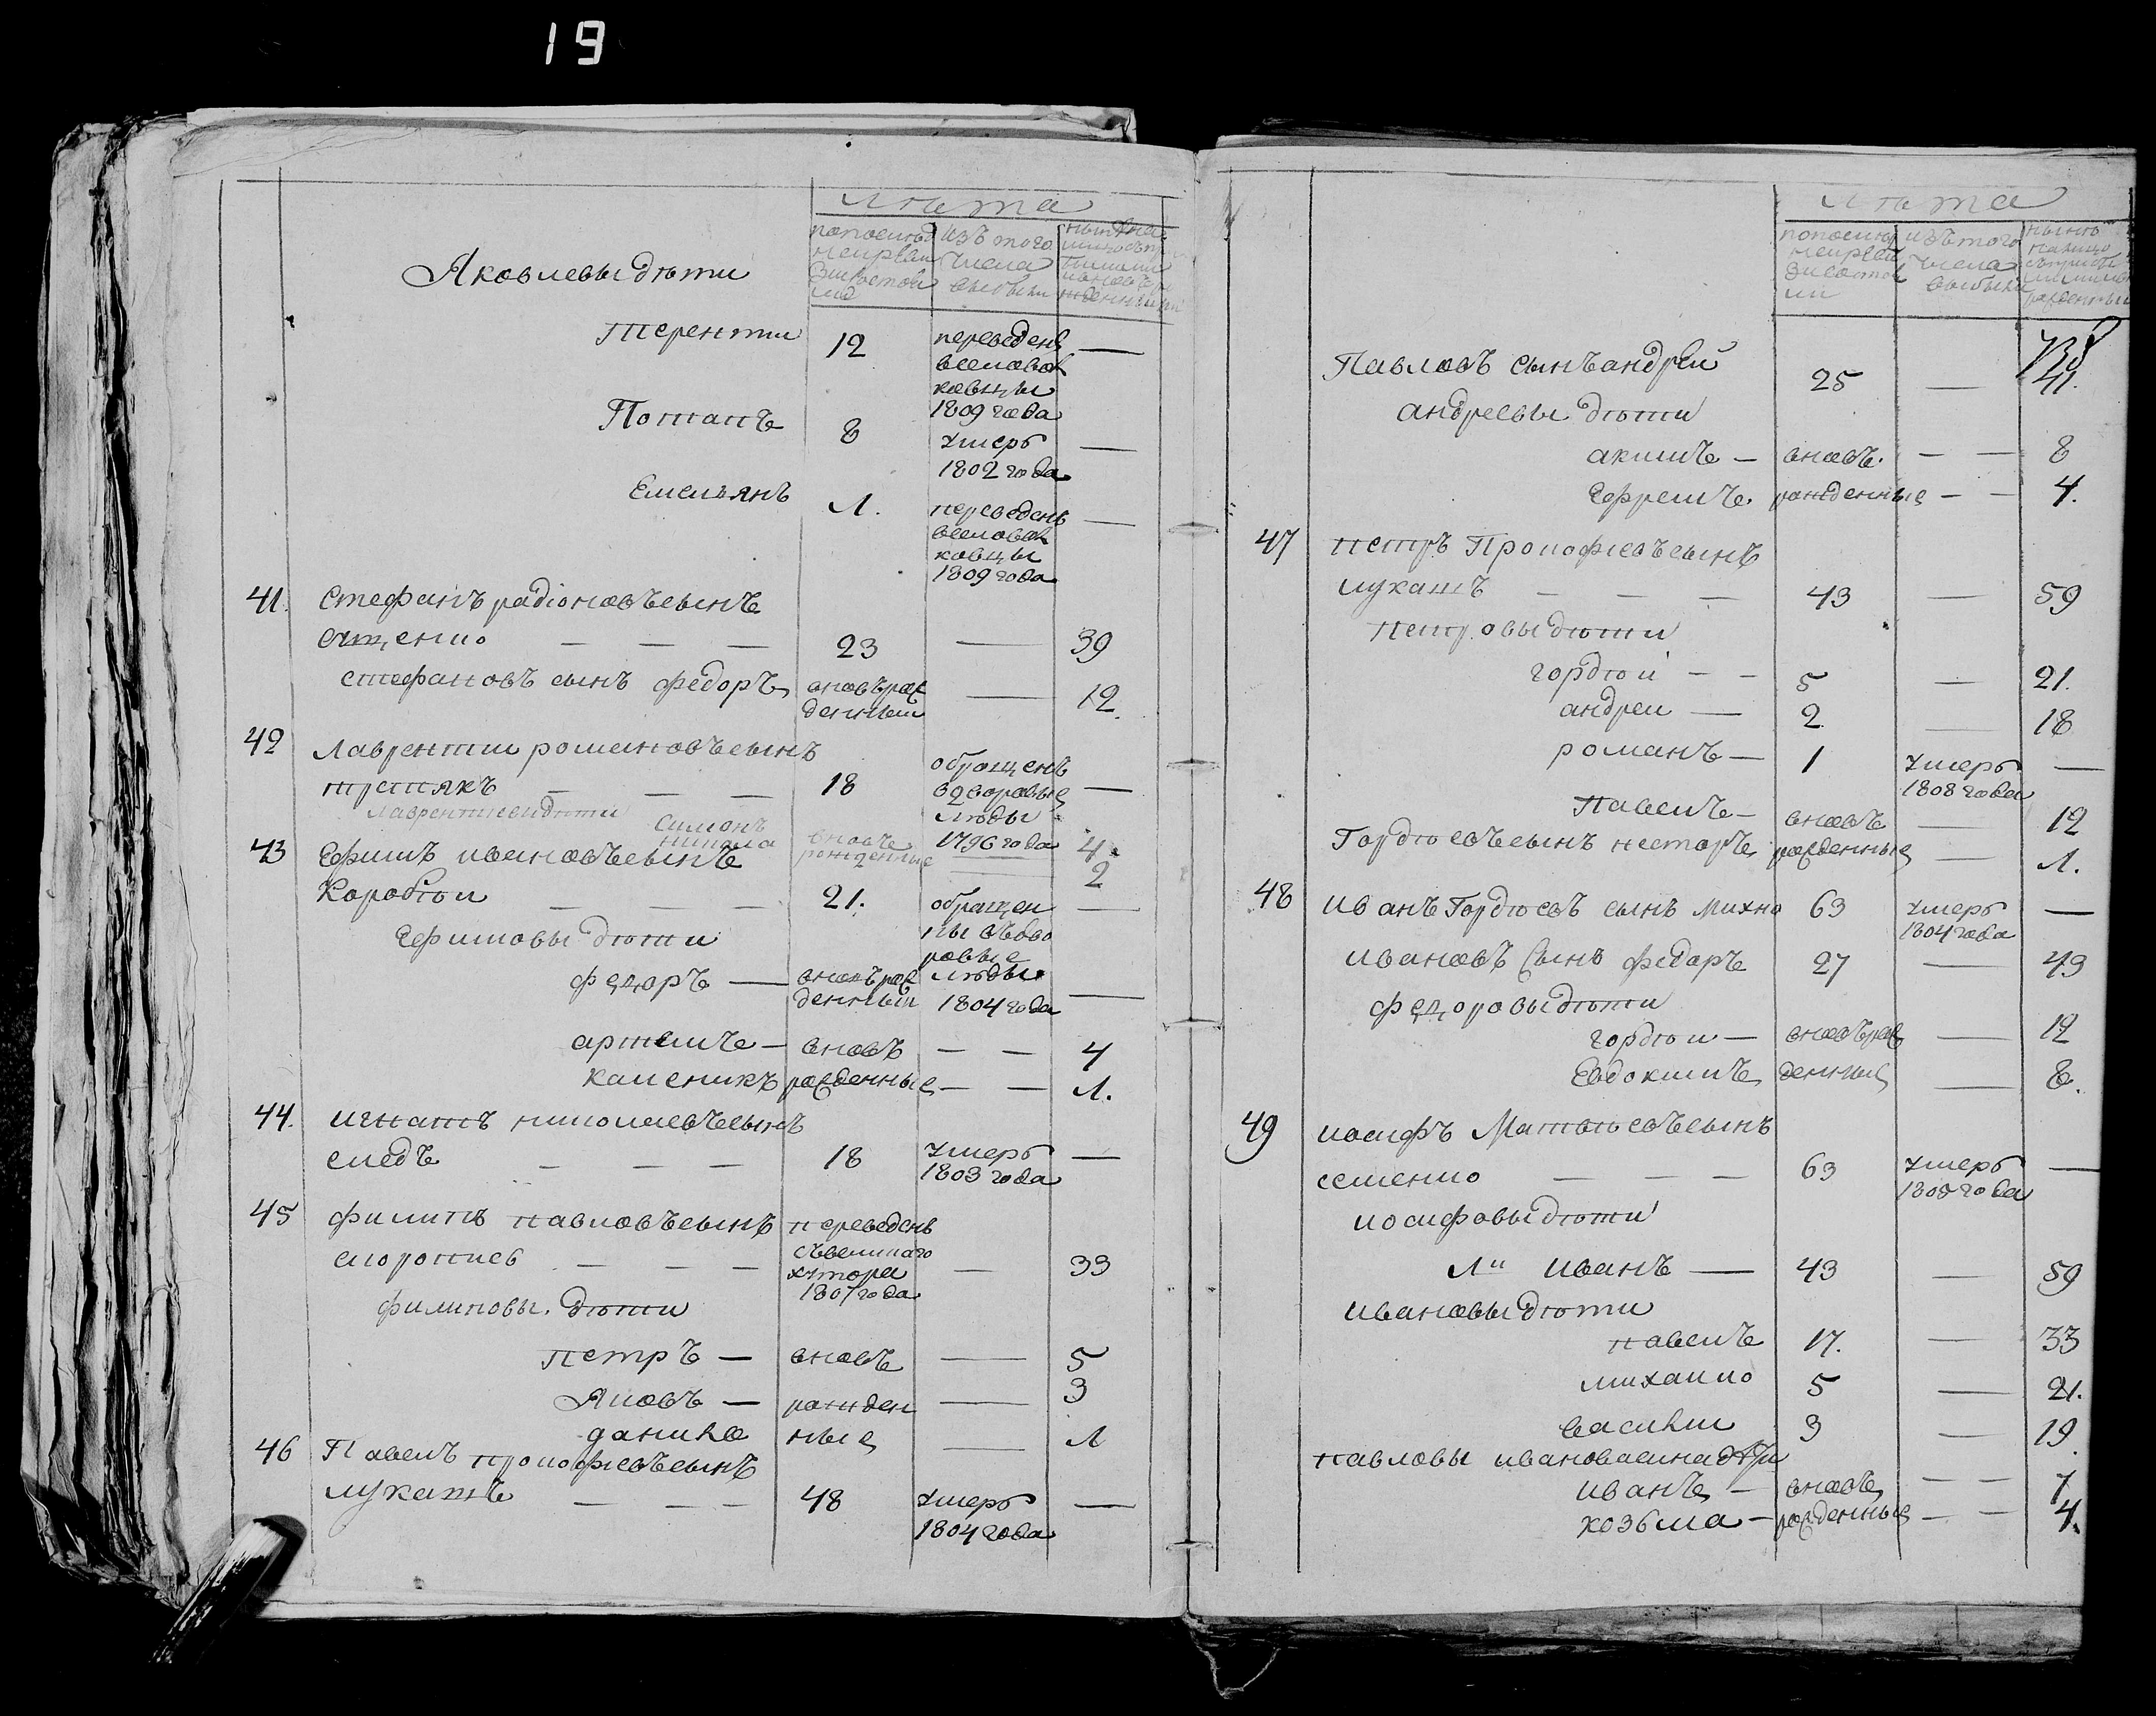 19
Лѣта
Яковлевы дѣти
изъ того
числа
выбыли
Терентии 12 переведенъ —
в село вол
ковцы
1809 года
Потапъ 8 умеръ —
1802 года
Емельянъ 1. переведенъ —
в село вол
ковцы
1809 года
41. Стефанъ радіоновъ сынъ
— — — 23 — 39
стефановъ сынъ федоръ вновь рож — 12.
денныи
42 Лаврентии романовъ сынъ
третякъ — — — 18 обращенъ —
в дворовые
люды
1796 года
Лаврентиевы дѣти Симонъ вновь 4.
никола рожденные 2
43 Ефимъ ивановъ сынъ
Коробки — — — 21. обращен —
ны въ дво
ровые
люды
1804 года
Ефимовы дѣти
федоръ — вновь рож —
денныи
артемъ — вновь — — 4
каленикъ рожденные — — 1.
44. игнатъ николаевъ сынъ
следъ — — — 18 умеръ —
1803 года
45 филипъ павловъ сынъ переведенъ
— — — хутора — 33
1807 года
филиповы дѣти
петръ — вновь — 5
Яковъ — рожден — 3
данило ные — 1
46 Павелъ прокофиевъ сынъ
лукашъ — — — 48 умеръ —
1804 года
Лѣта
изъ того
числа
выбыли
Павловъ сынъ андрей 25 — 41.
андреевы дѣти
акимъ — вновь — — 8
Ефремъ рожденные — — 4.
47 петръ Прокофиевъ сынъ
лукашъ — — — 43 — 59
петровы дѣти
гордѣи — — 5 — 21.
андреи — 2 — 18
романъ — 1 умеръ —
1808 года
павелъ — вновь — 12
Гордѣевъ сынъ несторъ рожденные — 1.
48 иванъ Гордѣевъ сынъ михно 63 умеръ —
1804 года
ивановъ Сынъ федоръ 27 — 43
федоровы дѣти
гордѣи — вновь рож — 12
Евдокимъ денные — 8.
49 иосифъ Матвѣевъ сынъ
семенко — — — 63 умеръ —
1808 года
иосифовы дѣти
1й иванъ — 43 — 59
ивановы дѣти
павелъ 17. — 33
михаило 5 — 21.
василии 3 — 19.
павловы ивановаго сина дѣти
иванъ — вновь — — 7
козьма — рожденные — — 4.